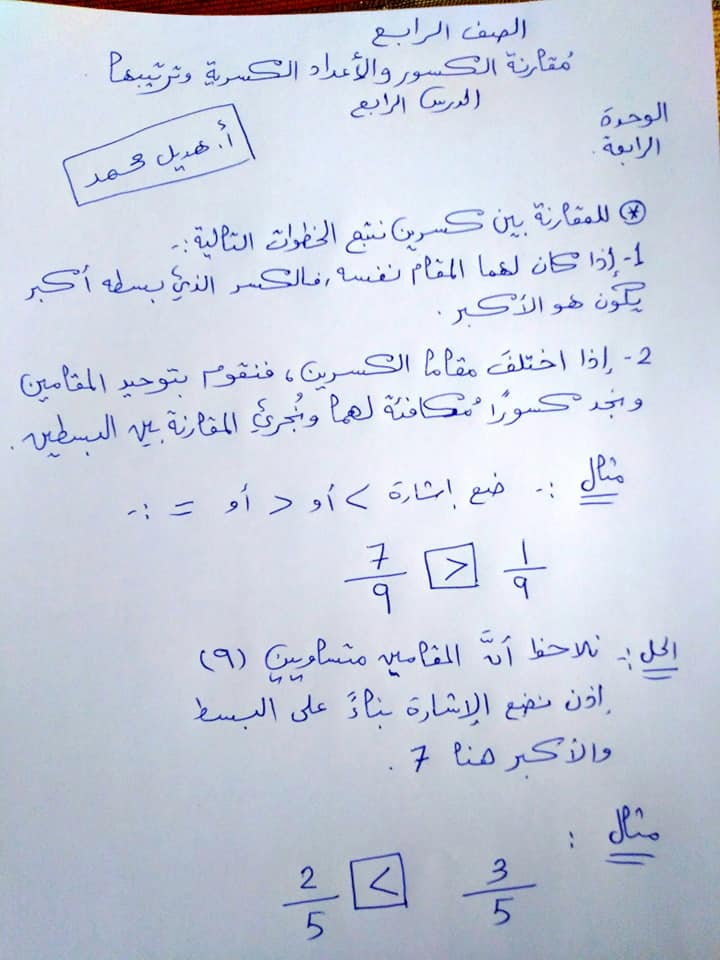 الصف الرابع
مُقارنة الكسور والأعداد الكسرية وترتيبها
الدرس الرابع
الوحدة
الرابعة.
أ. هديل محمد
* للمقارنة بين كسرين نتبع الخطوات التالية :-
1- إذا كان لهما المقام نفسه، فالكسر الذي بسطه أكبر
يكون هو الأكبر.
2- إذا اختلفَ مقاما الكسرين، فنقوم بتوحيد المقامين
ونجد كسورًا مُكافئة لهما ونُجري المقارنة بين البسطين.
مثال :- ضع إشارة < أو > أو = :-
7/9 > 1/9
الحل :- نلاحظ أنَّ المقامين متساويين (٩)
إذن نضع الإشارة بناءً على البسط
والأكبر هنا 7.
مثال :
2/5 < 3/5